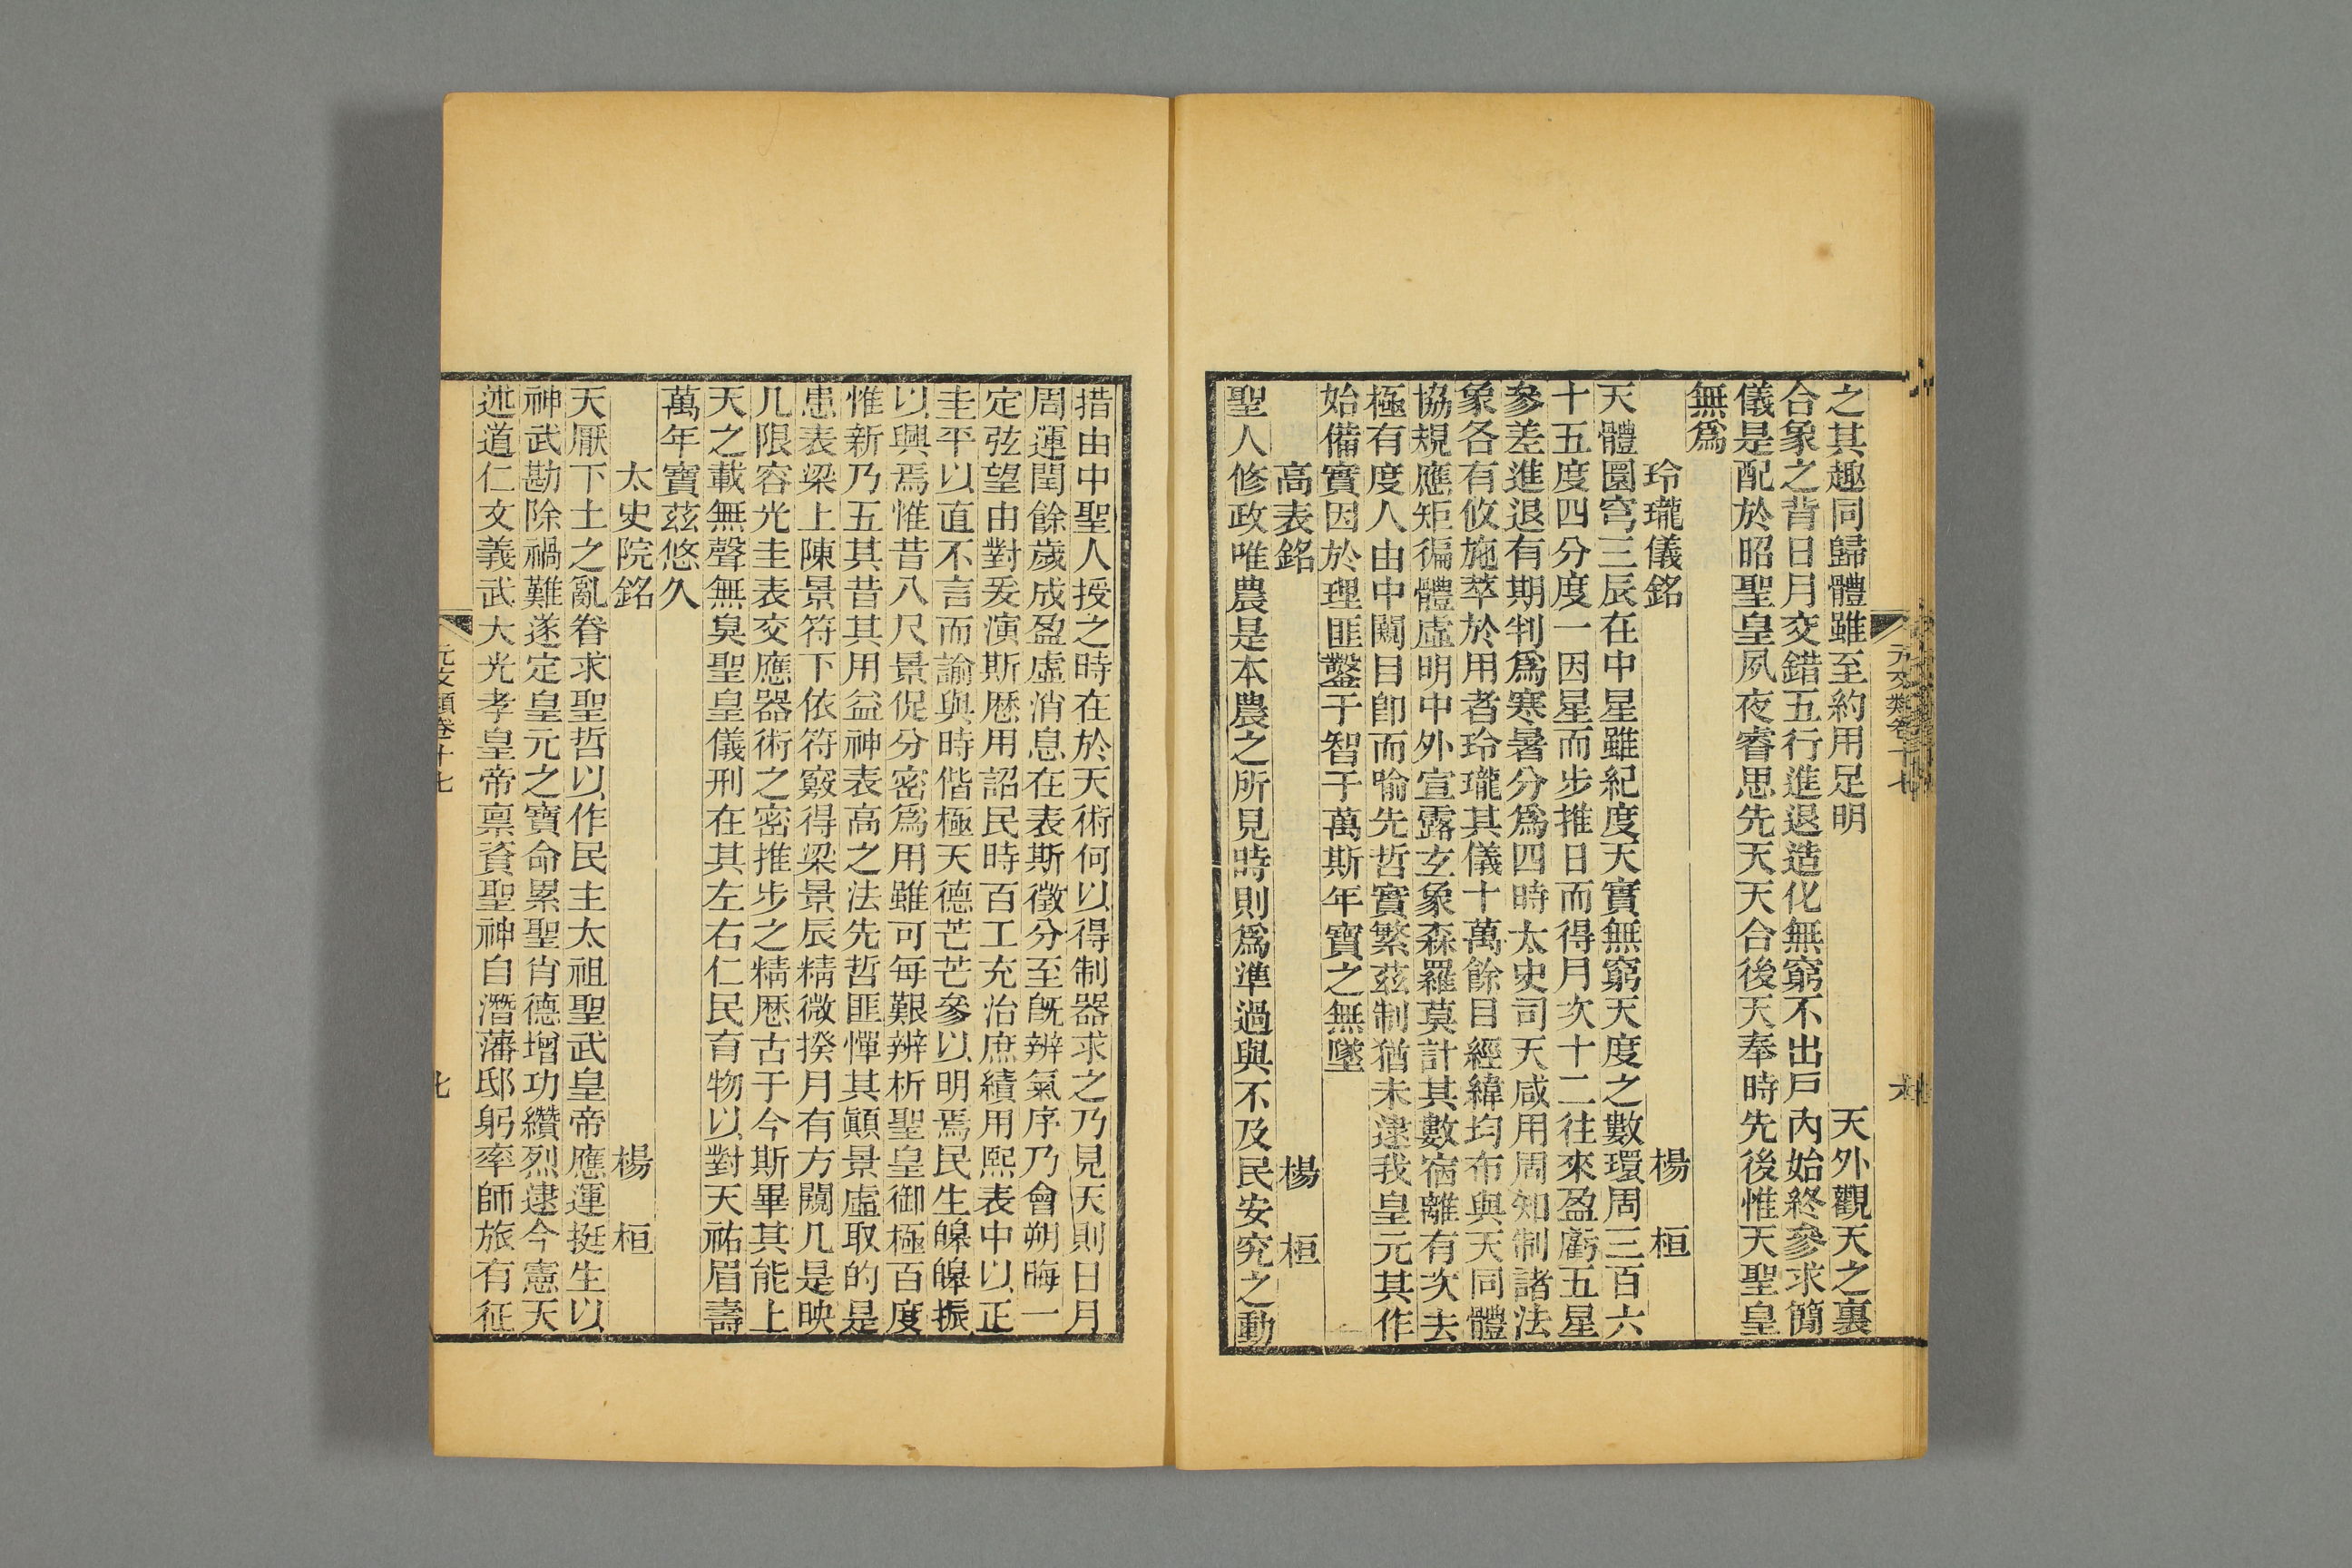 之其趣同歸體雖至約用足明　天外觀天之裏
合象之背日月交錯五行進退造化無窮不出戶內始終參求簡
儀是配於昭聖皇夙夜睿思先天天合後天奉時先後惟天聖皇
無爲
玲瓏儀銘　楊　桓
天體圜穹三辰在中星雖紀度天實無窮天度之數環周三百六
十五度四分度一因星而步推日而得月次十二往來盈虧五星
參差進退有期判爲寒暑分爲四時太史司天咸用周知制諸法
象各有攸施萃於用者玲瓏其儀十萬餘目經緯均布與天同體
協規應矩徧體虛明中外宣露玄象森羅莫計其數宿離有次去
極有度人由中闚目卽而喻先哲實繁茲制猶未逮我皇元其作
始備實因於理匪鑿于智于萬斯年寶之無墜
高表銘　楊　桓
聖人修政唯農是本農之所見時則爲準過與不及民安究之動
元文類卷十七
措由中聖人授之時在於天術何以得制器求之乃見天則日月
周運閏餘歲成盈虛消息在表斯徵分至旣辨氣序乃會朔晦一
定弦望由對爰演斯厯用詔民時百工充治庶績用熙表中以正
圭平以直不言而諭與時偕極天德芒芒參以明焉民生皥皥振
以興焉惟昔八尺景促分密爲用雖可每艱辨析聖皇御極百度
惟新乃五其昔其用益神表高之法先哲匪憚其顚景虛取的是
患表梁上陳景符下依符竅得梁景辰精微揆月有方闚几是映
几限容光圭表交應器術之密推步之精厯古于今斯畢其能上
天之載無聲無臭聖皇儀刑在其左右仁民育物以對天祐眉壽
萬年寶茲悠久
太史院銘　楊　桓
天厭下土之亂眷求聖哲以作民主太祖聖武皇帝應運挺生以
神武勘除禍難遂定皇元之寶命累聖肖德增功纘烈逮今憲天
述道仁文義武大光孝皇帝禀資聖神自潛藩邸躬率師旅有征
元文類卷十七
七